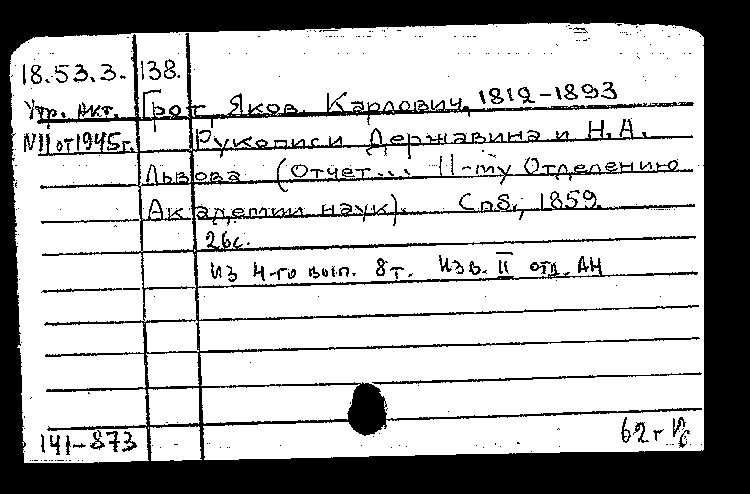 18.53.3. 138.
Утр. акт. Грот Яков Карлович, 1812-1893
N11 от 1945г. Рукописи Державина и Н.А.
Львова (Отчет... II-му Отделению
Академии наук). Спб., 1859.
26с.
Из 4-го вып. 8т. Изв. II отд. АН
141-873 62г